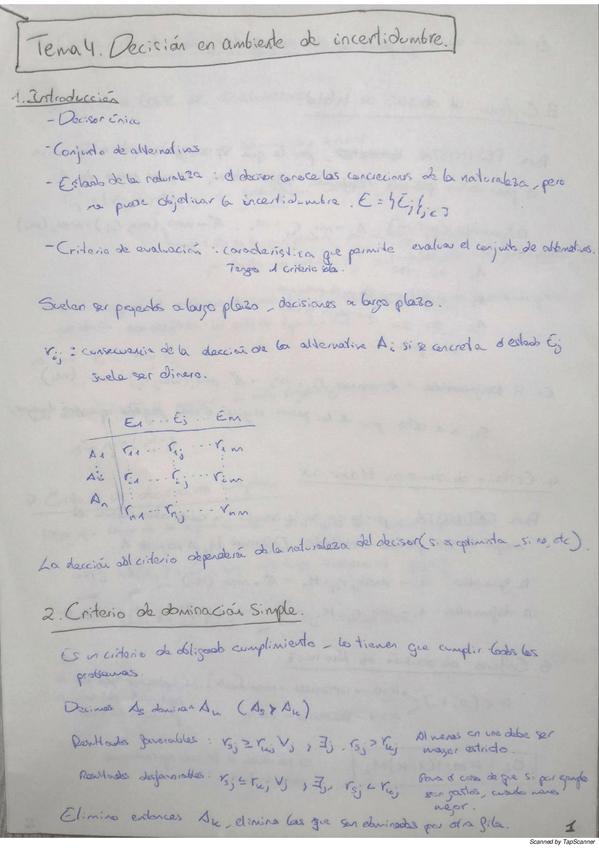 Tema 4. Decisión en ambiente de incertidumbre.
1. Introducción
- Decisor único
- Conjunto de alternativas
- Estado de la naturaleza : el decisor conoce las concreciones de la naturaleza, pero
no puede objetivar la incertidumbre. E = {Ej}j∈J
- Criterio de evaluación : característica que permite evaluar el conjunto de alternativas.
Tengo 1 criterio solo.
Suelen ser proyectos a largo plazo, decisiones a largo plazo.
rij : consecuencia de la elección de la alternativa Ai si se concreta el estado Ej
suele ser dinero.
E1 ... Ej ... Em
A1 r11 ... r1j ... r1m
Ai ri1 ... rij ... rim
An rn1 ... rnj ... rnm
La elección del criterio dependerá de la naturaleza del decisor (si es optimista, si no, etc).
2. Criterio de dominación simple.
Es un criterio de obligado cumplimiento, lo tienen que cumplir todos los
problemas
Decimos As dominan Ak (As > Ak)
Resultados favorables : rsj ≥ rkj ∀j , ∃j, rsj > rkj Al menos en uno debe ser
mayor estricto.
Resultados desfavorables: rsj ≤ rkj ∀j , ∃j, rsj < rkj Para el caso de que si por ejemplo
son gastos, cuanto menos
mejor.
Elimino entonces Ak, elimina las que son dominadas por otra fila.
1
Scanned by TapScanner